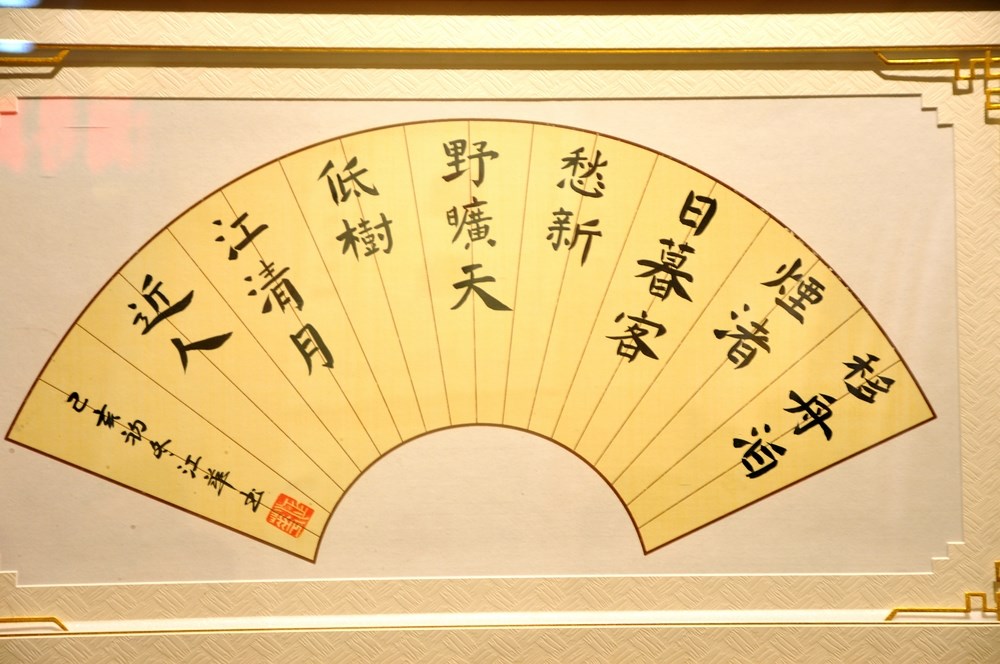 移舟泊
煙渚
日暮客
愁新
野曠天
低樹
江清月
近人
己亥初冬江華書